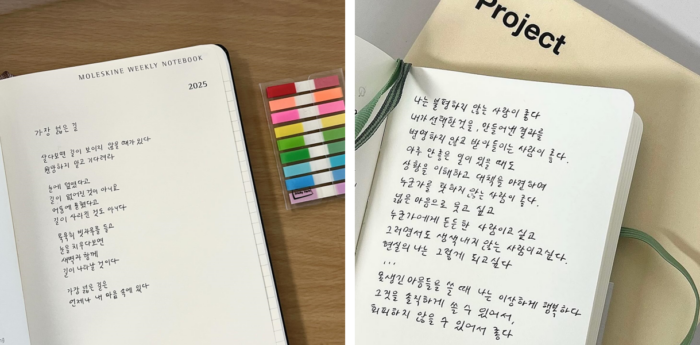 MOLESKINE WEEKLY NOTEBOOK
2025
가장 넓은 길
살다보면 길이 보이지 않을 때가 있다
원망하지 말고 기다려라
눈에 덮였다고
길이 없어진 것이 아니요
어둠에 묻혔다고
길이 사라진 것도 아니다
묵묵히 빗자루를 들고
눈을 치우다보면
새벽과 함께
길이 나타날 것이다
가장 넓은 길은
언제나 내 마음 속에 있다
Project
나는 불평하지 않는 사람이 좋다
내가 선택한것을, 만들어낸 결과을
변명하지 않고 받아들이는 사람이 좋다.
아주 안좋은 일이 있을 때도
상황을 이해하고 대책을 마련하며
누군가를 탓하지 않는 사람이 좋다.
넓은 마음으로 웃고 싶고
누군가에게 든든한 사람이고 싶고
그러면서도 생색내지 않는 사람이고싶다.
현실의 나는 그렇게 되고싶다
...
못생긴 마음들을 쓸 때 나는 이상하게 행복하다
그것을 솔직하게 쓸 수 있어서,
회피하지 않을 수 있어서 좋다